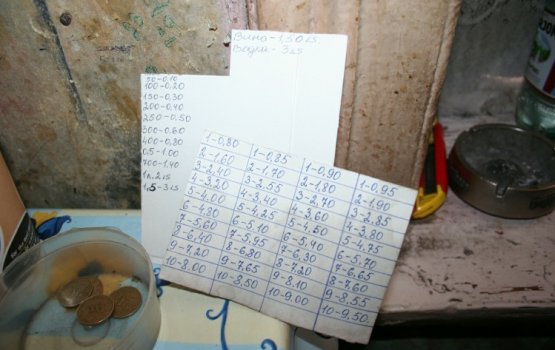 Вина-1,50 лв
Водки-3лв
50-0,10
100-0,20
150-0,30
200-0,40
250-0,50
300-0,60
400-0,80
0,5-1,00
700-1,40
1л.2лв
1,5-3лв
1-0,80 1-0,85 1-0,90 1-0,95
2-1,60 2-1,70 2-1,80 2-1,90
3-2,40 3-2,55 3-2,70 3-2,85
4-3,20 4-3,40 4-3,60 4-3,80
5-4,00 5-4,25 5-4,50 5-4,75
6-4,80 6-5,10 6-5,40 6-5,70
7-5,60 7-5,95 7-6,30 7-6,65
8-6,40 8-6,80 8-7,20 8-7,60
9-7,20 9-7,65 9-8,10 9-8,55
10-8,00 10-8,50 10-9,00 10-9,50